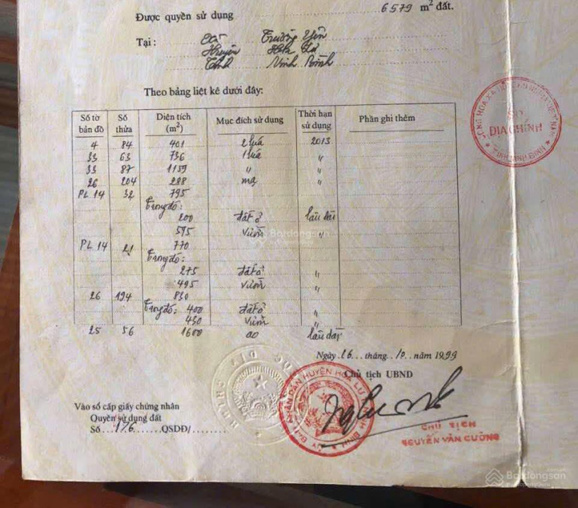 Được quyền sử dụng 6579 m² đất.
Tại : Xã Trường Yên
Huyện Hoa Lư
Tỉnh Ninh Bình
Theo bảng liệt kê dưới đây:
Số tờ bản đồ | Số thửa | Diện tích (m²) | Mục đích sử dụng | Thời hạn sử dụng | Phần ghi thêm
4 84 401 2 lúa 2013
33 63 736 1 lúa "
33 87 1159 " "
26 204 288 mạ "
PL 14 32 795
Trong đó:
200 đất ở lâu dài
595 vườn "
PL 14 21 770
Trong đó:
275 đất ở "
495 vườn "
26 194 850
Trong đó: 400 đất ở "
450 vườn "
25 56 1600 ao lâu dài
Ngày 16 tháng 10 năm 1999
Chủ tịch UBND
Vào sổ cấp giấy chứng nhận
Quyền sử dụng đất
Số 176 QSDĐ/
CHỦ TỊCH
NGUYỄN VĂN CƯỜNG
SỞ
ĐỊA CHÍNH
Batdongsan
Batdongsan